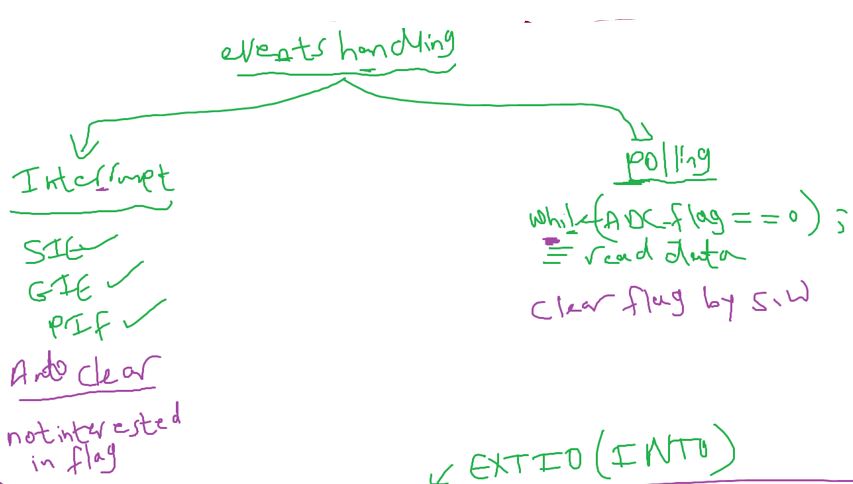 events handling
Interrupt
SIE
GIE
PIF
Auto clear
not interested
in flag
polling
while(ADC_flag == 0) ;
= read data
clear flag by S.W
EXTI0 (INT0)